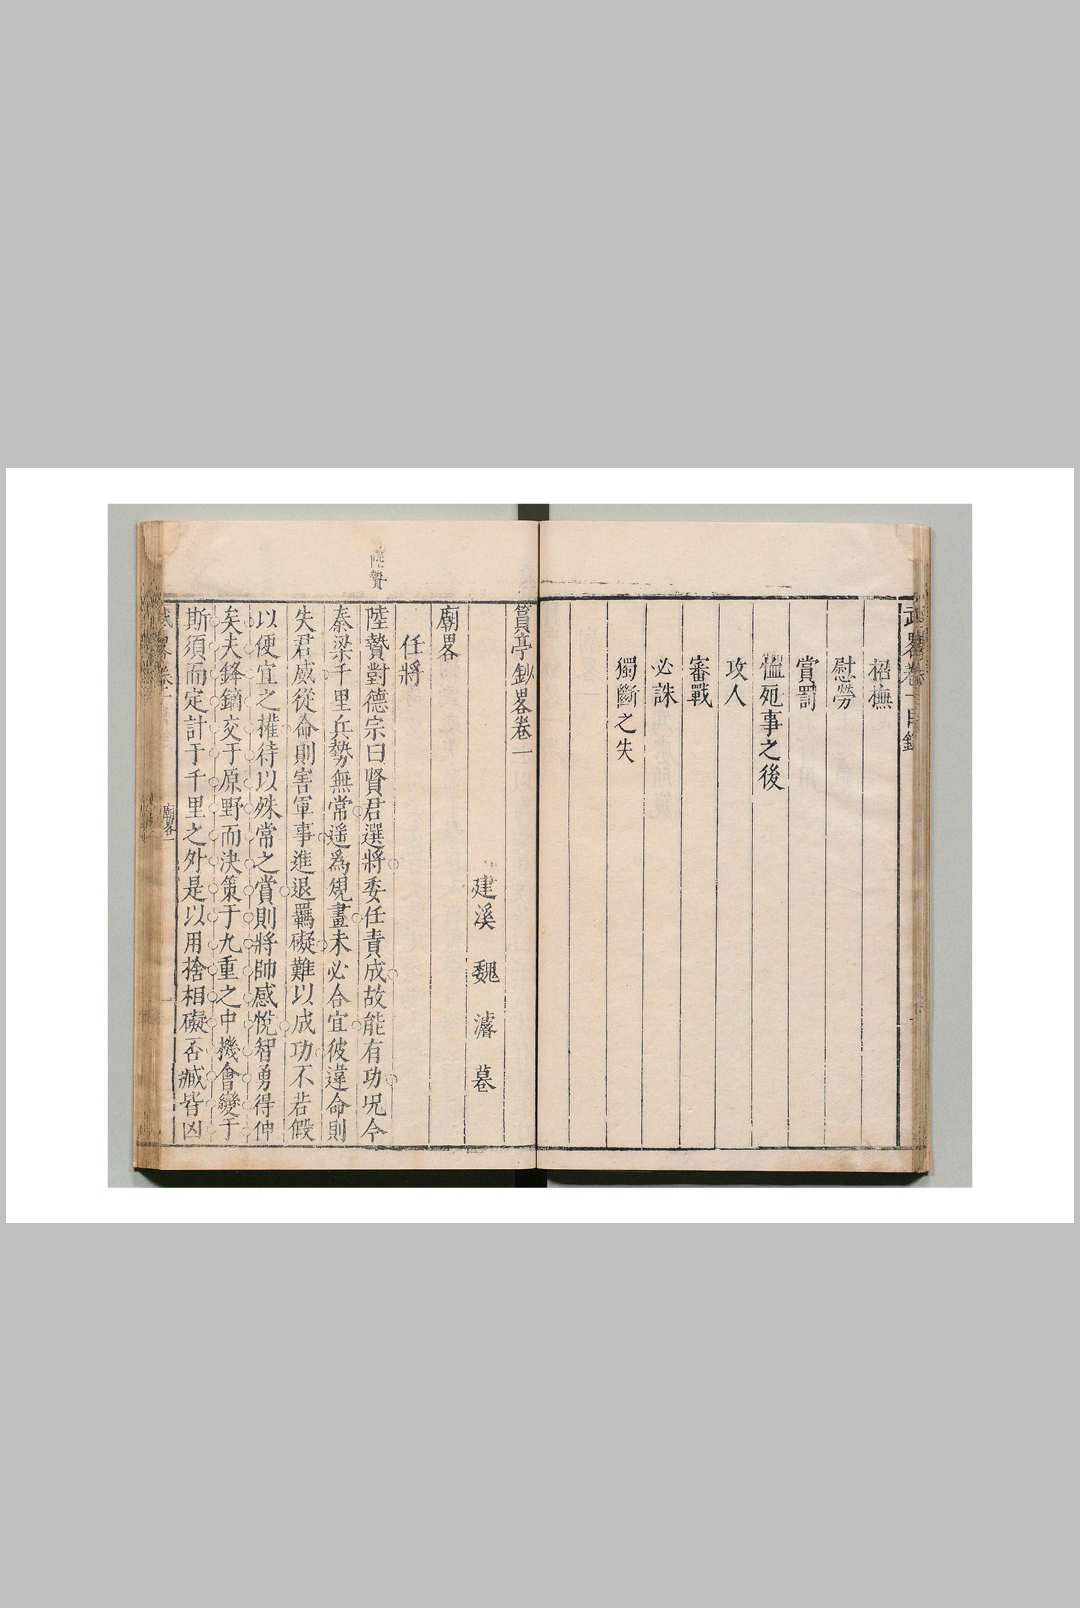 武畧卷一目錄
招撫
慰勞
賞罰
恤死事之後
攻人
審戰
必誅
獨斷之失
篔亭鈔畧卷一
建溪 魏 濬 纂
廟畧
任將
陸贄
陸贄對德宗曰賢君選將委任責成故能有功况今
秦梁千里兵勢無常遥爲規畫未必合宜彼違命則
失君威從命則害軍事進退羈礙難以成功不若假
以便宜之權待以殊常之賞則將帥感悅智勇得伸
矣夫鋒鏑交于原野而決策于九重之中機會變于
斯須而定計于千里之外是以用捨相礙否臧皆凶
武畧卷一
廟畧
一